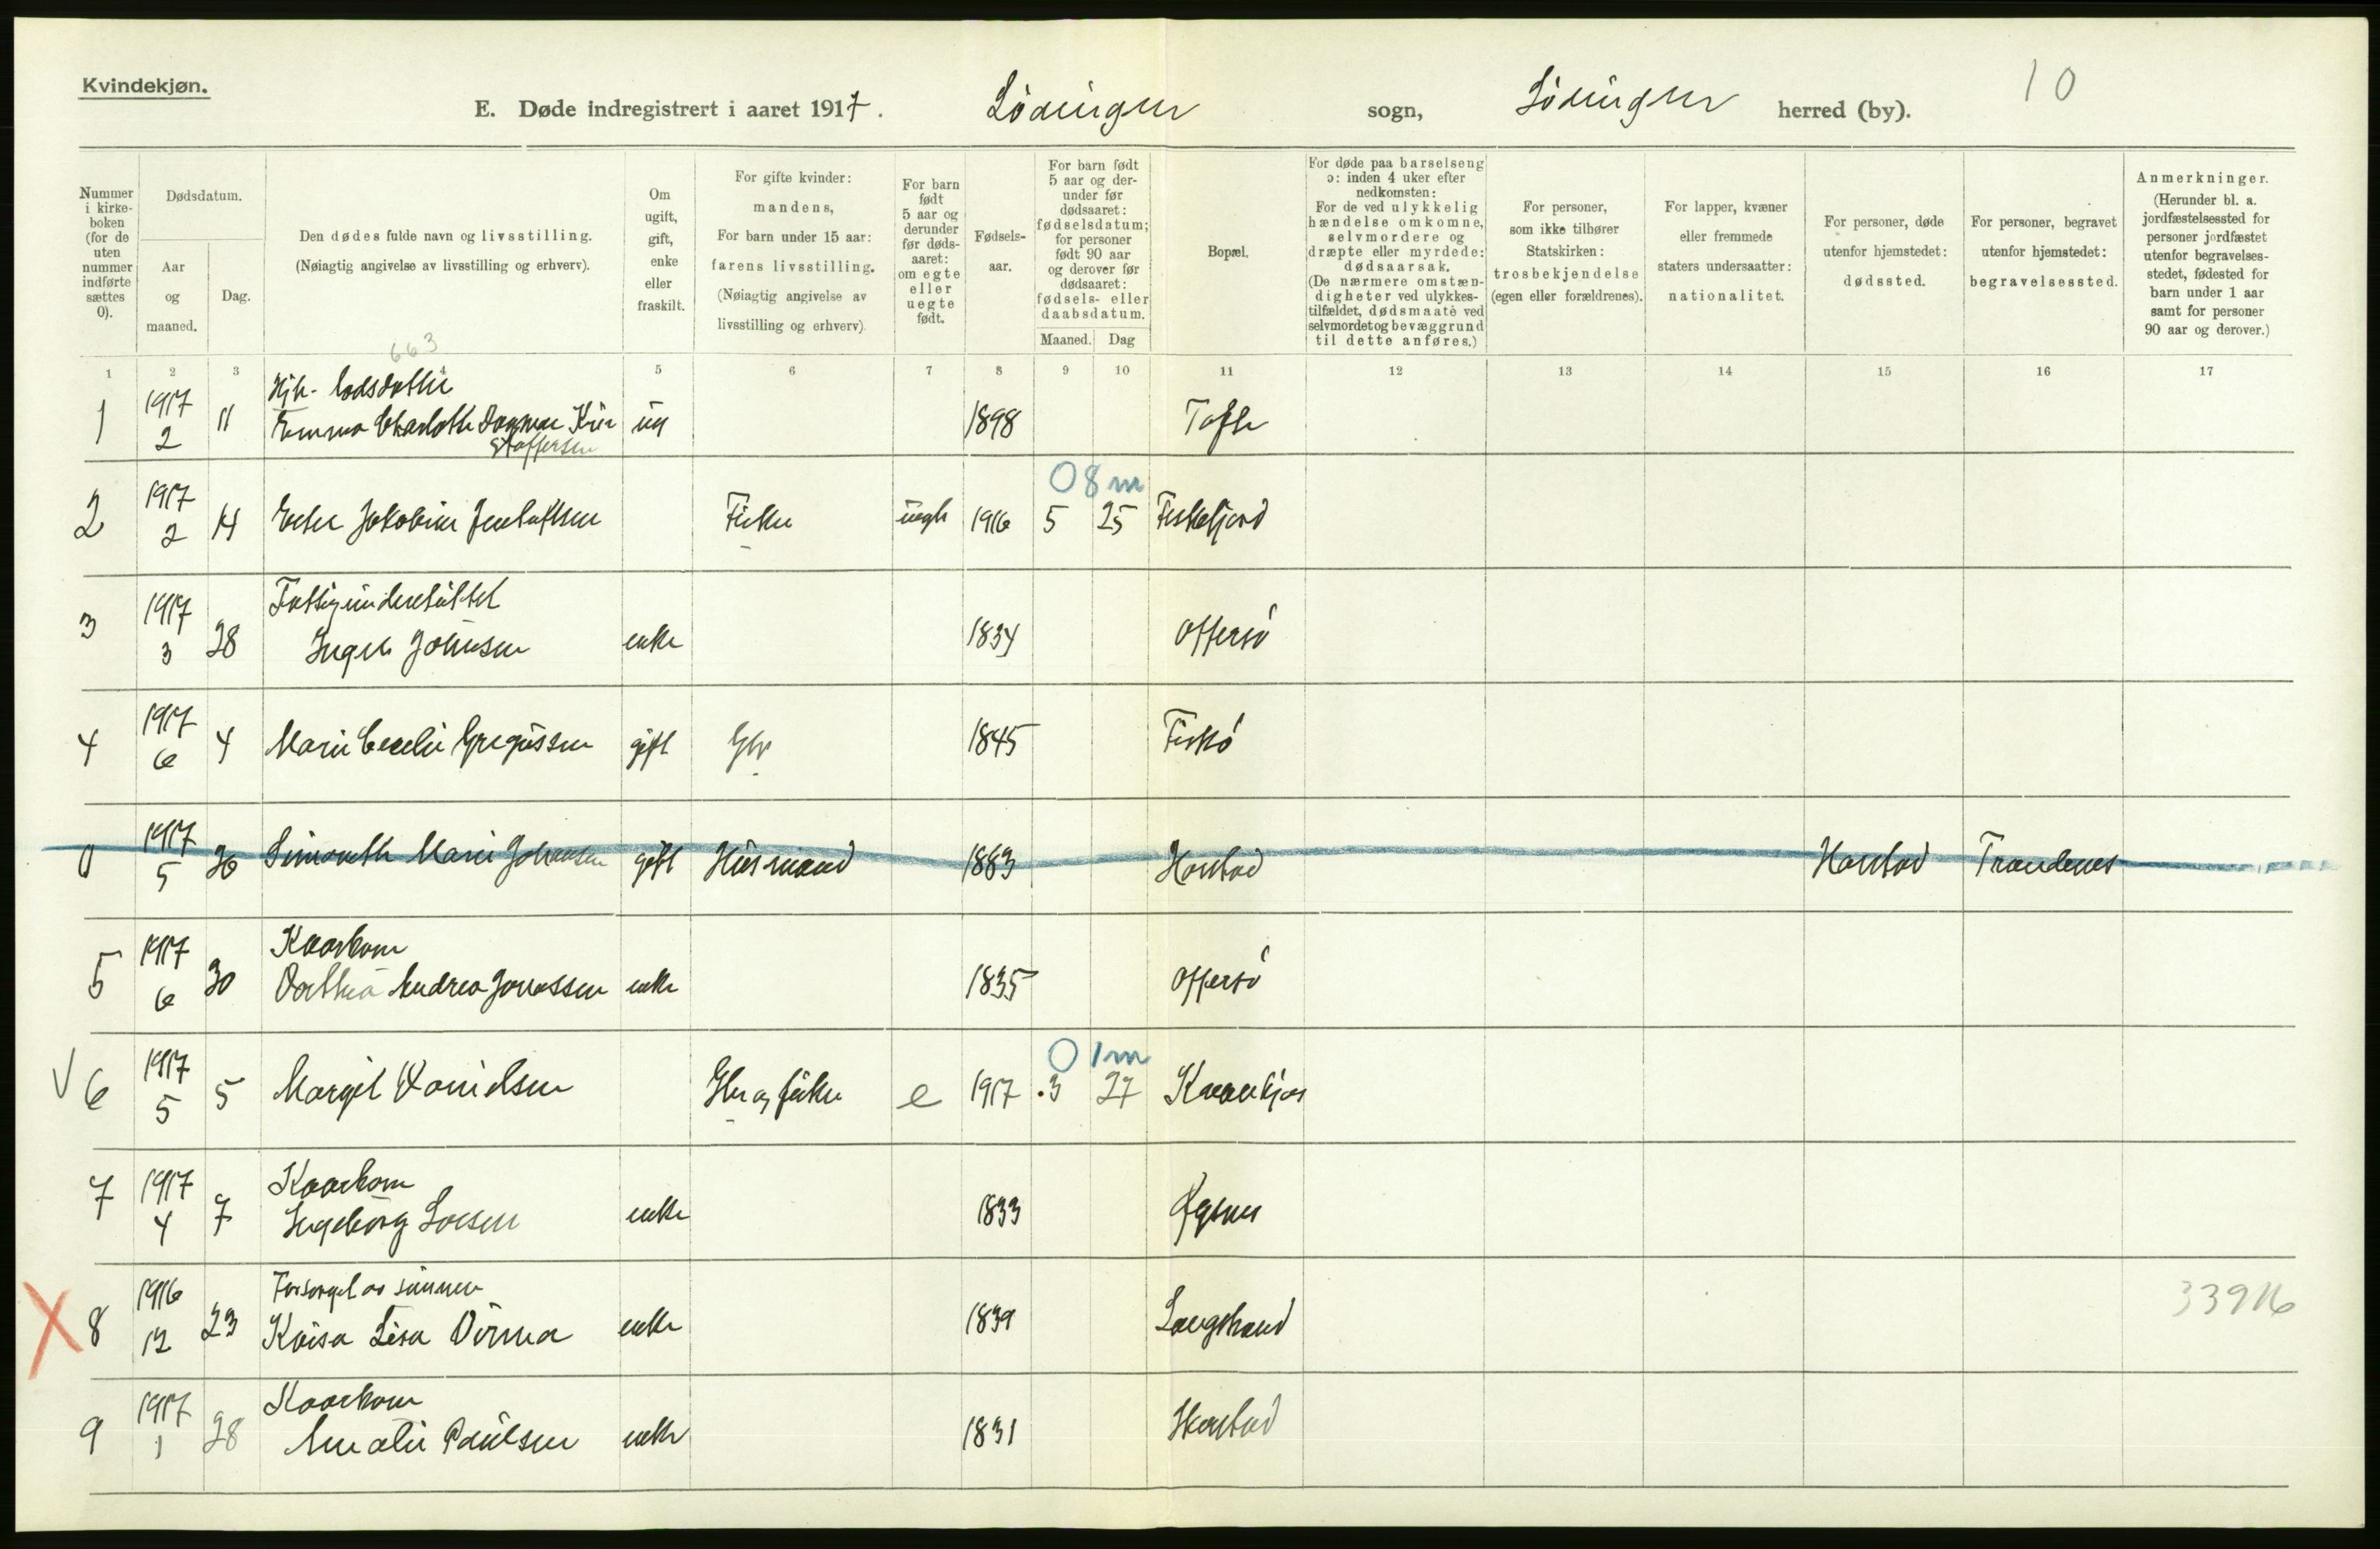 Kvindekjøn.
E. Døde indregistrert i aaret 1917. Lødingen sogn, Lødingen herred (by). 10
Nummer i kirkeboken (for de uten nummer indførte sættes 0).
Dødsdatum.
Aar og maaned.
Dag.
Den dødes fulde navn og livsstilling.
(Nøiagtig angivelse av livsstilling og erhverv).
663
Om ugift, gift, enke eller fraskilt.
For gifte kvinder: mandens,
For barn under 15 aar: farens livsstilling.
(Nøiagtig angivelse av livsstilling og erhverv)
For barn født 5 aar og derunder før dødsaaret: om egte eller uegte født.
Fødselsaar.
For barn født 5 aar og derunder før dødsaaret: fødselsdatum; for personer født 90 aar og derover før dødsaaret: fødsels- eller daabsdatum.
Maaned. Dag
Bopæl.
For døde paa barselseng ɔ: inden 4 uker efter nedkomsten:
For de ved ulykkelig hændelse omkomne, selvmordere og dræpte eller myrdede: dødsaarsak.
(De nærmere omstændigheter ved ulykkestilfældet, dødsmaate ved selvmordet og bevæggrund til dette anføres.)
For personer, som ikke tilhører Statskirken: trosbekjendelse (egen eller forældrenes).
For lapper, kvæner eller fremmede staters undersaatter: nationalitet.
For personer, døde utenfor hjemstedet: dødssted.
For personer, begravet utenfor hjemstedet: begravelsessted.
Anmerkninger.
(Herunder bl. a. jordfæstelsessted for personer jordfæstet utenfor begravelsesstedet, fødested for barn under 1 aar samt for personer 90 aar og derover.)
1 2 3 4 5 6 7 8 9 10 11 12 13 14 15 16 17
1 1917 2 11 Emma Charlotte Dagmar Kristoffersen ug 1898
08m
2 1917 2 14 Jakobine Fisker uegte 1916 5 25 Fiskefjord
3 1917 3 28 Fattigunderstøttet
Johnsen enke 1834 Offersø
4 1917 6 4 Marie Cecelie Gregussen gift Gbr 1845 Fiskø
0 1917 5 26 Simonette Marie Johansen gift Husmand 1883 Harstad Harstad Trondenes
5 1917 6 30 Kaarkone
Dorthea Andrea Jonassen enke 1835 Offersø
01m
V 6 1917 5 5 Margit Danielsen Gbr og fisker e 1917 3 27 Kvannkjos
7 1917 4 7 Kaarkone
Ingeborg Larsen enke 1833
X 8 1916 12 23 Forsørget av sønnen
Kaisa Lisa enke 1839 Langstrand 33916
9 1917 1 28 Kaarkone
Amalie Paulsen enke 1831